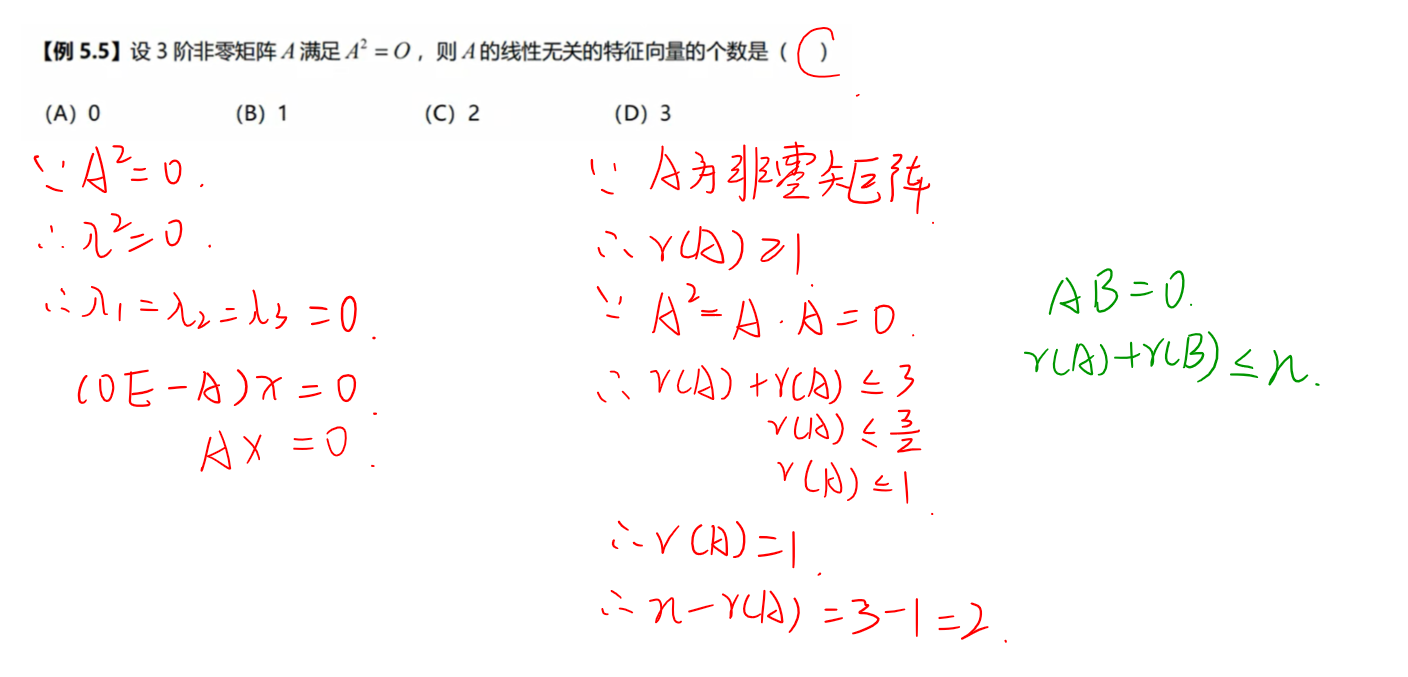 【例 5.5】设 3 阶非零矩阵 A 满足 A² = O，则 A 的线性无关的特征向量的个数是（ C ）.
(A) 0 (B) 1 (C) 2 (D) 3
∵ A² = 0.
∴ λ² = 0.
∴ λ₁ = λ₂ = λ₃ = 0.
(0E − A)x = 0.
Ax = 0.
∵ A为非零矩阵.
∴ r(A) ≥ 1
∵ A² = A · A = 0.
∴ r(A) + r(A) ≤ 3
r(A) ≤ 3/2
r(A) ≤ 1.
∴ r(A) = 1.
∴ n − r(A) = 3 − 1 = 2.
AB = 0.
r(A) + r(B) ≤ n.